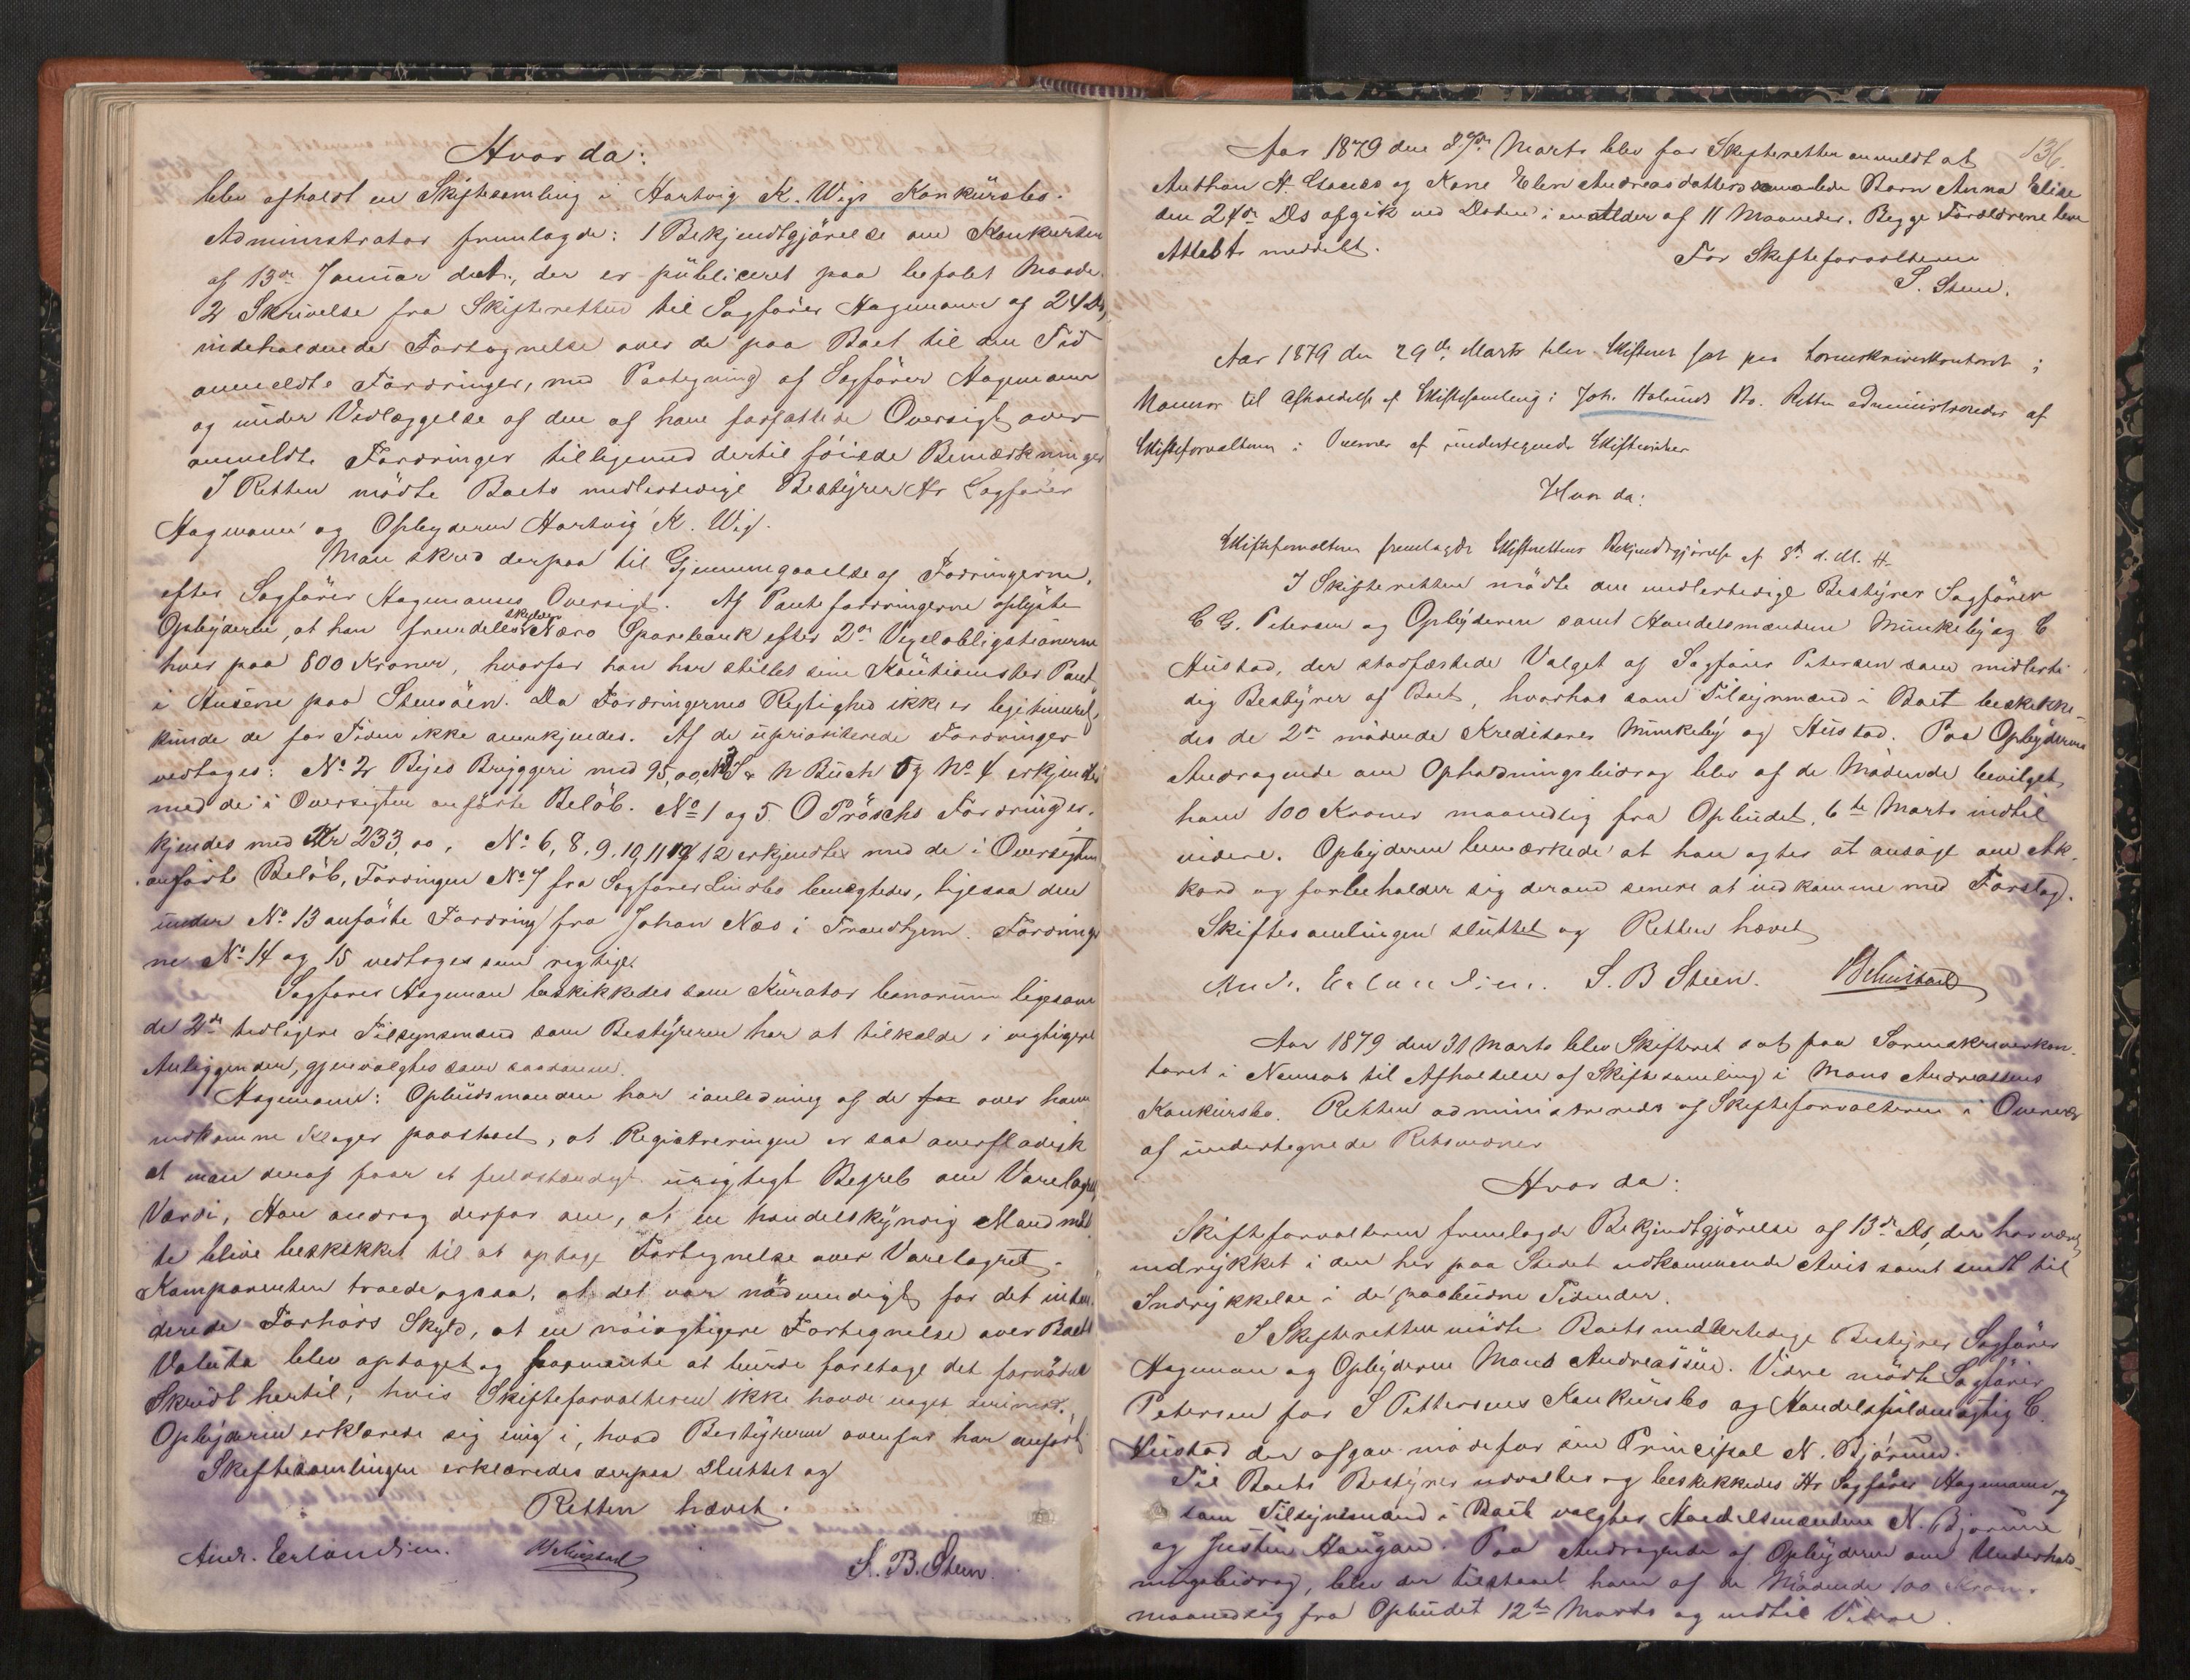 Hvor da:
blev afholdt en Skiftesamling i Hartvig K. Wigs Konkürsbo.
Administrator fremlagde: 1 Bekjendtgjörelse om Konkursen
af 13de Januar d.A., der er pübliceret paa befalet Maade.
2 Skrivelse fra Skifteretten til Sagförer Hagemann af 24 Ds,
indeholdende Fortegnelse over de paa Boet til den Tid
anmeldte Fordringer, med Paategning af Sagförer Hagemann
og ünder Vedlæggelse af den af ham forfattede Oversigt over
anmeldte Fordringer tilligemed dertil föiede Bemærkninger
I Retten mödte Boets midlertidige Bestÿrer Hr Sagförer
Hagemann og Opbyderen Hartvig K. Wig.
Man skred derpaa til Gjennemgaaelse af Fordringerne,
efter Sagförer Hagemanns Oversigt. Af Pantefordringerne oplÿste
Opbÿderen, at han fremdeles skylder Nærö Sparebank efter 2de Vexelobligationerne
hver paa 800 Kroner, hvorfor han har stillet sine Kautionister Pant
i Husene paa Stensöen. Da Fordringernes Rigtighed ikke er legitimeret,
künde de for Tiden ikke anerkjendes. Af de üprioriterede Fordringer
vedtoges: No 2 Bÿes Brÿggeri med 95,00, No 3 & N Buch og No 4 erkjendtes
med de i Oversigten anförte Belöb. No 1 og 5. O Pröschs Fordring er-
kjendes med Kr 233,00. No 6, 8, 9, 10, 11 og 12 erkjendtes med de i Oversigten
anförte Belöb, Fordringen No 7 fra Sagförer Lindbo benegtedes, ligesaa den
ünder No 13 anförte Fordring fra Johan Næs i Trondhjem. Fordringer-
ne No 14 og 15 vedtoges som rigtige.
Sagförer Hageman beskikkedes som Kürator bonorum ligesom
de 2de tidligere Tilsynsmænd som Bestÿreren har at tilkalde i vigtigere
Anliggender, gjenvalgtes som saadanne.
Hagemann: Opbüdsmanden har i anledning af de for over ham
indkomne Klager paastaaet, at Registreringen er saa overfladisk
at man deraf faar et fuldstændigt ürigtigt Begreb om Varelagrets
Værdi, Han androg derfor om, at en handelskÿndig Mand maat-
te blive beskikket til at optage Fortegnelse over Varelagret.
Komparenten troede ogsaa, at det var nödvendigt for det inten-
derede Forhörs Skyld, at en nöiagtigere Fortegnelse over Boets
Valüta blev optaget og formente at bürde foretage det fornödne
Skridt hertil, hvis Skifteforvalteren ikke havde noget derimod.
Opbÿderen erklærede sig enig i, hvad Bestÿreren ovenfor har anfört
Skiftesamlingen erklæredes derpaa sluttet og
Retten hævet.
Andr. Erlandsen. S. B. Steen.
136.
Aar 1879 den Marts blev for Skifteretten anmeldt at
Anthon H. og Kone Elen Andreasdatters Barn Anna Elise
den 24de Ds afgik ved Döden i en alder af 11 Maaneder. Begge Forældrene leve
Attest meddelt.
For Skifteforvalteren
S. Steen.
Aar 1879 den 29de Marts blev Skifteret sat paa Sorenskriverkontoret i
Namsos til Afholdelse af Skiftesamling i Joh. Holands Bo. Retten administreredes af
Skifteforvalteren i Overvær af undertegnede Skiftevidner
Hvor da:
Skifteforvalteren fremlagde Skifterettens Bekjendtgjörelse af 8de d. M. H.
I Skifteretten mödte den midlertidige Bestÿrer Sagförer
C G. Petersen og Opbÿderen samt Handelsmændene Münkebÿ og C
Hüstad, der stadfæstede Valget af Sagförer Petersen som midlerti-
dig Bestÿrer af Boet, hvorhos som Tilsynmænd i Boet beskikke-
des de 2de mödende Kreditorer Münkebÿ og Hüstad. Paa Opbÿderens
Andragende om Opholdningsbidrag blev af de Mödende bevilget
ham 100 Kroner maanedlig fra Opbüdet, 6te Marts indtil
videre. Opbÿderen bemærkede at han agter at ansöge om Ak-
kord og forbeholder sig derom senere at indkomme med Forslag.
Skiftesamlingen slüttet og Retten hævet
Andr. Erlandsen. S. B Steen.
Aar 1879 den 31 Marts blev Skifteret sat paa Sorenskriverkon-
toret i Namsos til Afholdelse af Skiftesamling i Mons Andreassens
Konkürsbo. Retten administreredes af Skifteforvalteren i Overvær
af ündertegnede Retsvidner
Hvor da:
Skifteforvalteren fremlagde Bekjendtgjörelse af 13de Ds, der har været
indrÿkket i den her paa Stedet udkommende Avis samt sendt til
Indrÿkkelse i de paabüdne Tidender.
I Skifteretten mödte Boets midlertidige Bestÿrer Sagförer
Hageman og Opbÿderen Mons Andreassen. Videre mödte Sagförer
Petersen for S Pettersens Konkürsbo og Handelsfüldmægtig C.
Hüstad der afgav möde for sin Principal N. Bjørum.
Til Boets Bestÿrer udvalgtes og beskikkedes Hr Sagförer Hagemann og
som Tilsÿnsmænd i Boet valgtes Handelsmændene N. Bjørum
og Jüstin Haugan. Paa Andragende af Opbÿderen om Underhold-
ningsbidrag, blev der tilstaaet ham af de Mödende 100 Kroner
maanedlig fra Opbüdet 12te Marts og indtil Videre.